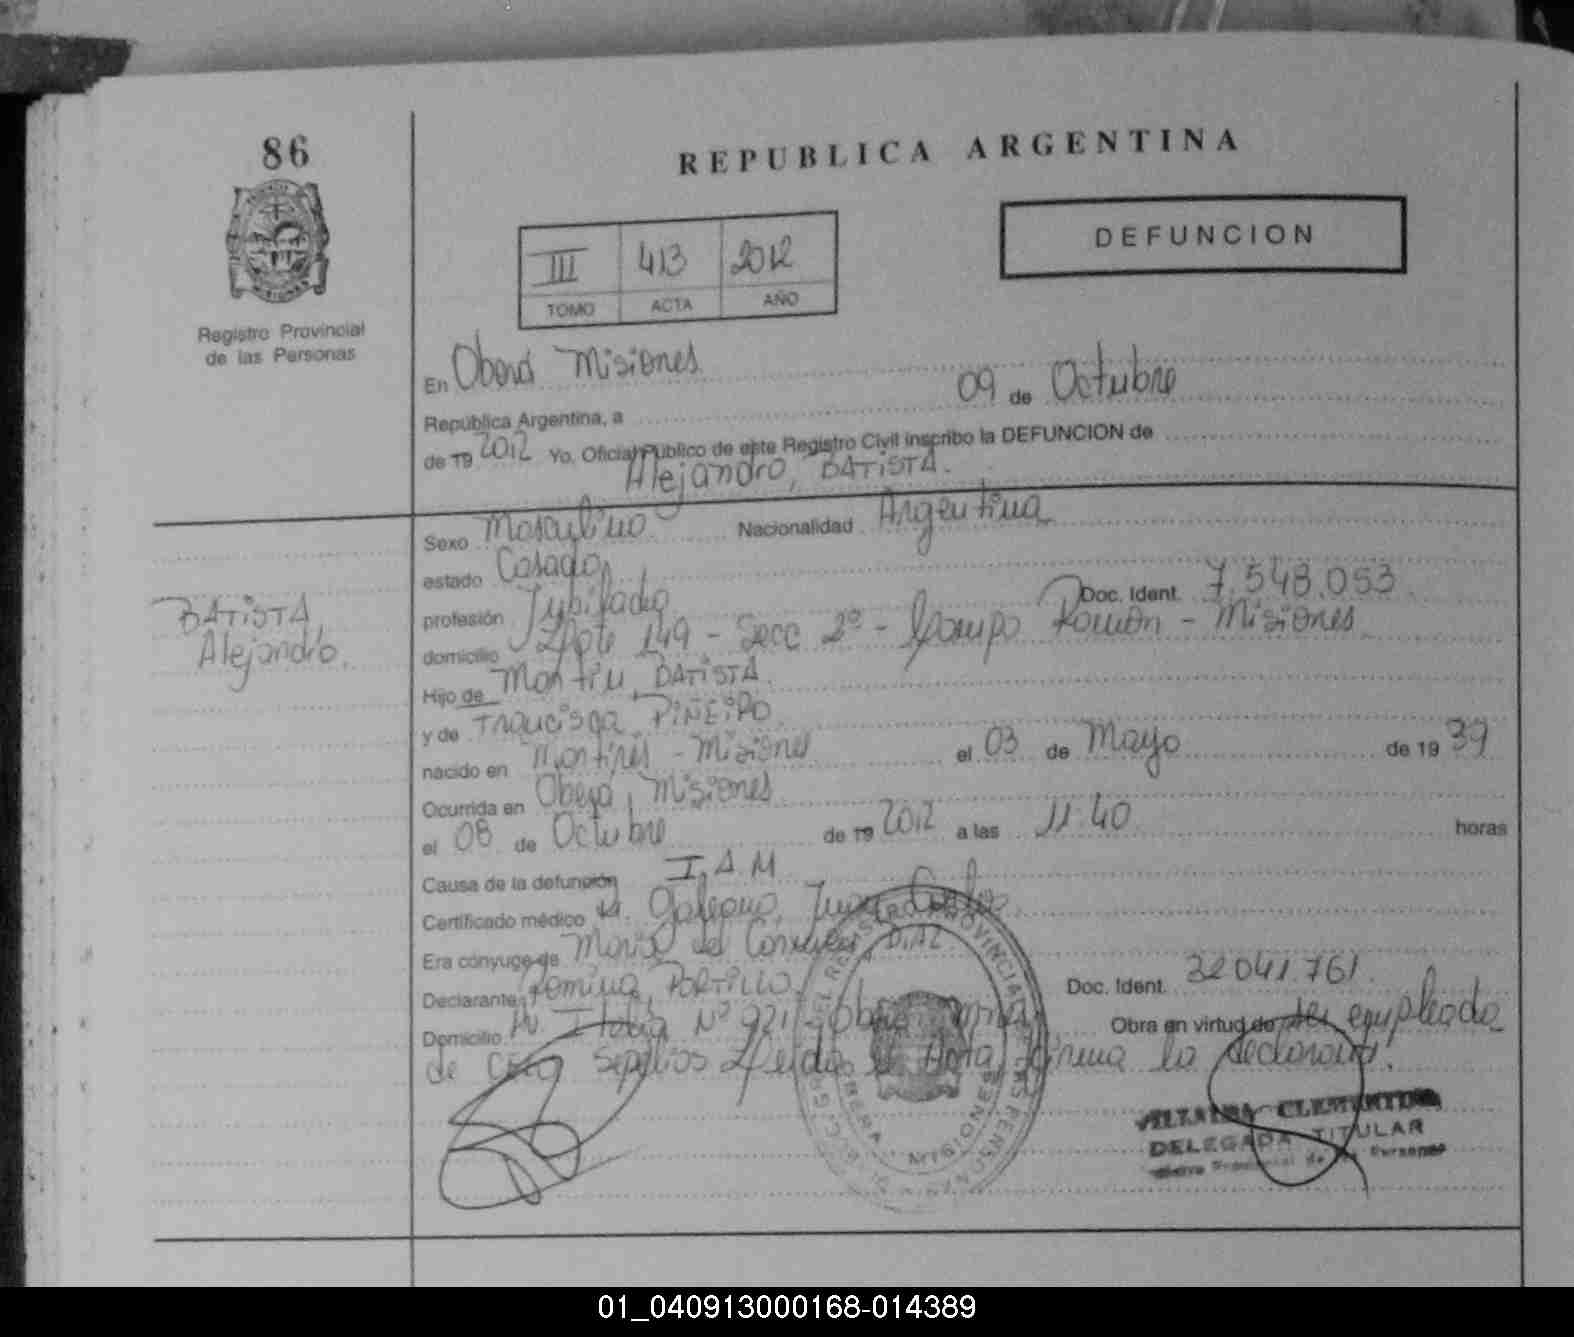 86
REPUBLICA ARGENTINA
DEFUNCION
III 413 2012
TOMO ACTA AÑO
Registro Provincial
de las Personas
En Oberá Misiones
República Argentina, a 09 de Octubre
de 19 2012 Yo, Oficial Público de este Registro Civil inscribo la DEFUNCION de
Alejandro, BATISTA.
Sexo Masculino Nacionalidad Argentina
estado Casado
profesión Jubilado Doc. Ident. 7.548.053
domicilio Lote 149 - Secc 2º - Campo Ramón - Misiones
BATISTA,
Alejandro.
Hijo de BATISTA
y de Francisca PIÑEIRO
nacido en Mártires - Misiones el 03 de Mayo de 19 39
Ocurrida en Oberá, Misiones
el 08 de Octubre de 19 2012 a las 11:40 horas
Causa de la defunción I.A.M
Certificado médico Dr. Galeano, Juan Carlos
Era cónyuge de DIAZ
Declarante Romina, PORTILLO Doc. Ident. 32041.761.
Domicilio Av. Italia Nº 921 - Oberá Obra en virtud de ser empleada
de Sepelios Leída el Acta, Firma la declarante.
DELEGADA TITULAR
01_040913000168-014389